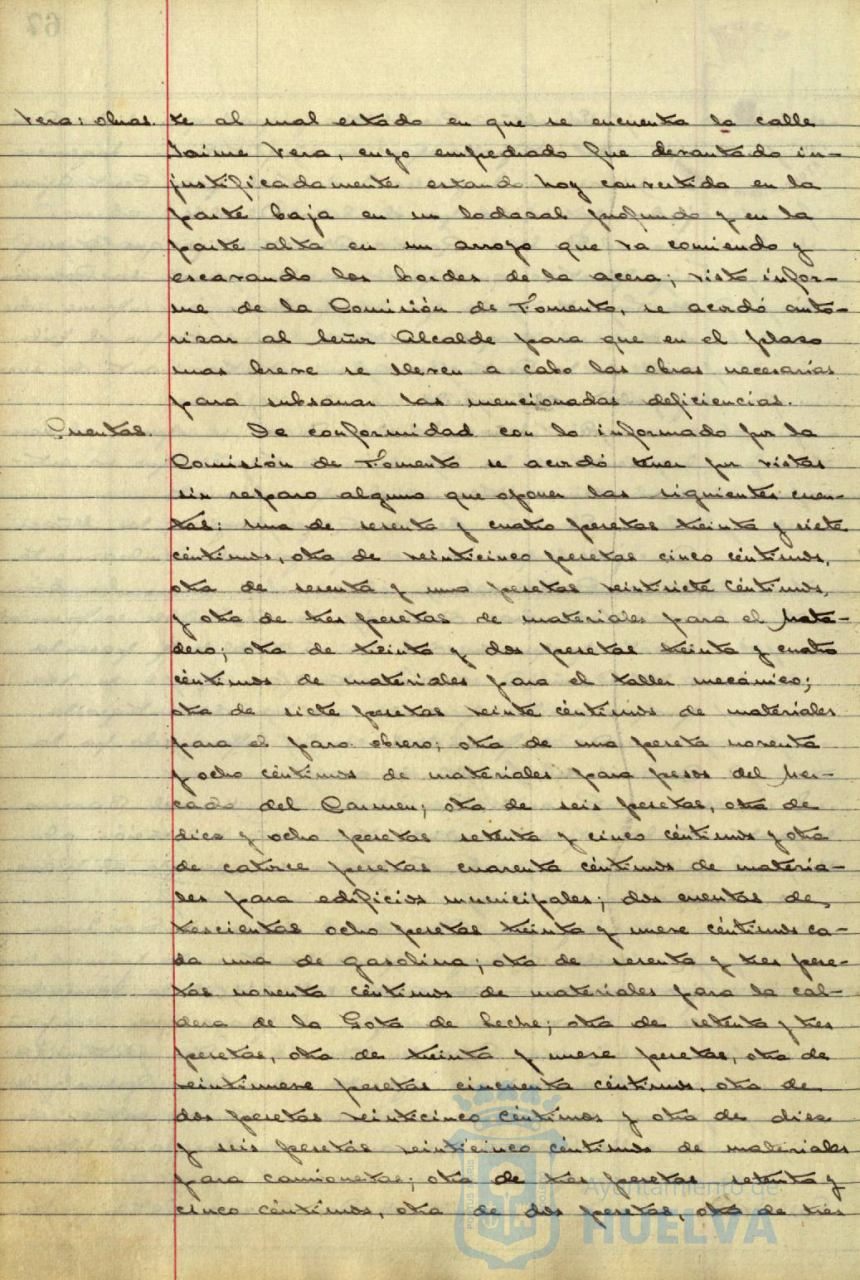 Vera: obras. te al mal estado en que se encuenta la calle
Jaime Vera, cuyo empedrado fue devantado in-
justificadamente estando hoy convertida en la
parte baja en un lodasal profundo y en la
parte alta en un arroyo que va comiendo y
escavando los bordes de la acera; visto infor-
me de la Comisión de Fomento, se acordó auto-
rizar al Señor Alcalde para que en el plaso
mas breve se lleven a cabo las obras necesarias
para subsanar las mencionadas deficiencias.
Cuentas. De conformidad con lo informado por la
Comisión de Fomento se acordó tener por vistas
sin reparo alguno que oponer las siguientes cuen-
tas: una de sesenta y cuatro pesetas treinta y siete
céntimos, otra de veinticinco pesetas cinco céntimos,
otra de sesenta y una pesetas veintisiete céntimos,
y otra de tres pesetas de materiales para el Mata-
dero; otra de treinta y dos pesetas treinta y cuatro
céntimos de materiales para el taller mecánico;
otra de siete pesetas veinte céntimos de materiales
para el paro obrero; otra de una peseta noventa
y ocho céntimos de materiales para pesos del Mer-
cado del Carmen; otra de seis pesetas, otra de
diez y ocho pesetas setenta y cinco céntimos y otra
de catorce pesetas cuarenta céntimos de materia-
les para edificios municipales; dos cuentas de
trescientas ocho pesetas treinta y nueve céntimos ca-
da una de gasolina; otra de sesenta y tres pese-
tas noventa céntimos de materiales para la cal-
dera de la Gota de Leche; otra de setenta y tres
pesetas, otra de treinta y nueve pesetas, otra de
veintinueve pesetas cincuenta céntimos, otra de
dos pesetas veinticinco céntimos y otra de diez
y seis pesetas veinticinco céntimos de materiales
para camionetas; otra de tres pesetas setenta y
cinco céntimos, otra de dos pesetas, otra de tres
Ayuntamiento de
HUELVA
67